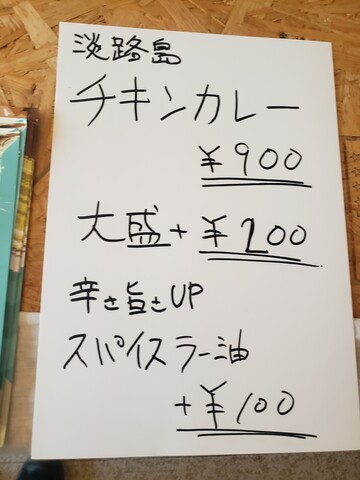 淡路島
チキンカレー
¥900
大盛+¥200
辛さ旨さUP
スパイスラー油
+¥100